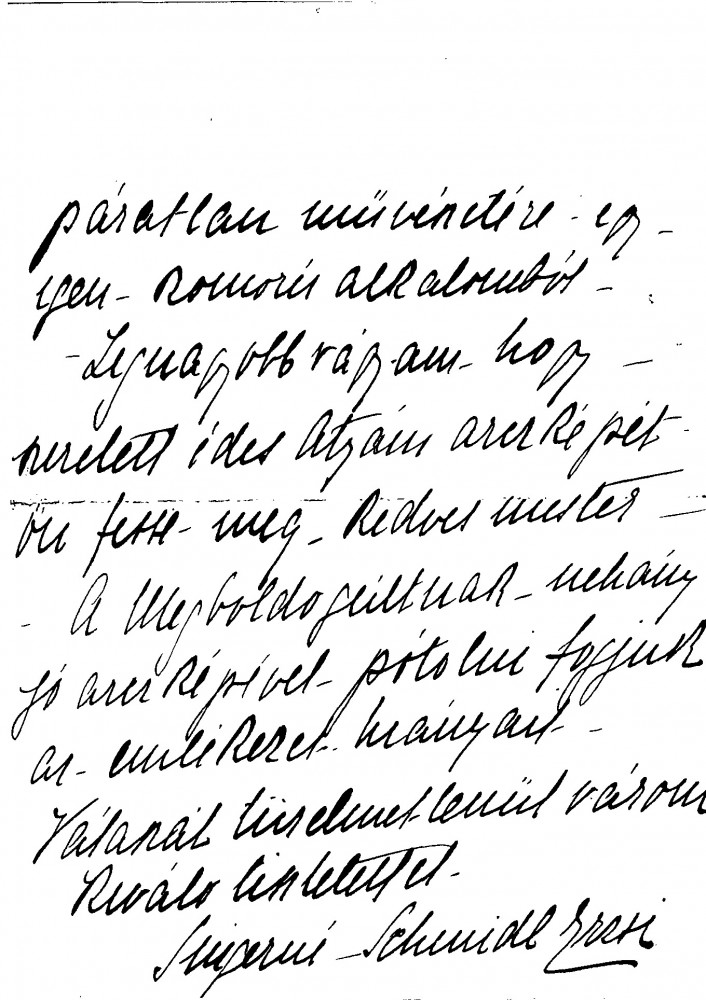 páratlan művészetére - egy -
igen - komoly alkalomból -
- Legnagyobb vágyam - hogy -
szeretett édes Atyám arcképét -
ön fesse - meg - kedves mester -
- A Megboldogultnak - néhány
jó arcképével - pótolni fogjuk
az - emlékezet - hiányait -
Válaszát türelmetlenül várom
kiváló tisztelettel -
Singerné - Schmidl Erzsi